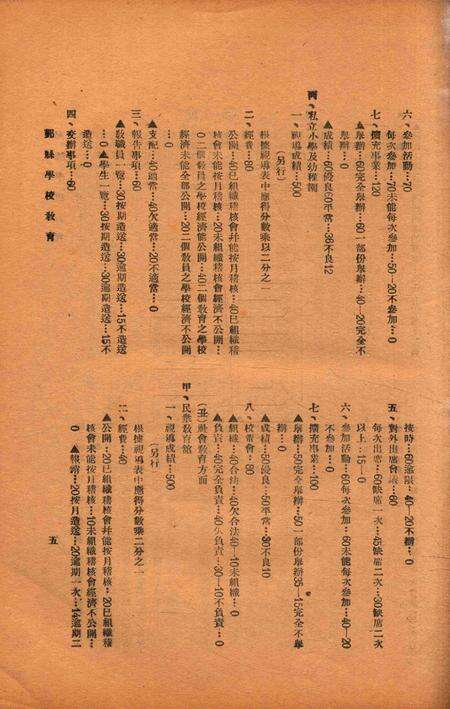 六、參加活動…70
每次參加…70未能每次參加…50—20不參加…0
七、擴充事業…120
▲舉辦…60完全舉辦…60一部份舉辦…40—20完全不
舉辦…0
▲成績…60優良…60平常…36不良12
丙、私立小學及幼稚園
一、視導成績…500
(另行)
根據視導表中應得分數乘以二分之一
二、經費…80
公開…40已組織稽核會幷能按月稽核…40已組織稽
核會未能按月稽核…20未組織稽核會經濟不公開…
0二個教員之學校經濟能公開…40二個教育之學校
經濟未能全部公開…20二個教員之學校經濟不公開
…0
▲支配…40適當…40欠適當…20不適當…0
三、報告事項…60
▲教職員一覽…30按期造送…30逾期造送…15不造送
…0▲學生一覽…30按期造送…30逾期造送…15不
造送…0
四、交辦事項…60
鄞縣學校敎育
按時…60逾限…40—20不辦…0
五、對外出席會議…60
每次出席…60缺席一次…45缺席二次…30缺席二次
以上…15—0
六、參加活動…60每次參加…60未能每次參加…40—20
不參加…0
七、擴充事業…100
▲舉辦…50完全舉辦…50一部份舉辦35—15完全不舉
辦…0
▲成績…50優良…50平常…30不良10
八、校董會…80
▲組織…40合法…40欠合法40—10未組織…0
▲負責…40完全負責…40欠負責…30—10不負責…0
(丑)社會敎育方面
甲、民衆敎育館
一、視導成績…500
(另行)
根據視導表中應得分數乘二分之一
二、經費…40
▲公開…20已組織稽核會幷能按月稽核…20已組織稽
核會未能按月稽核…10未組織稽核會經濟不公開…
0▲報銷…20按月造送…20逾期一次…14逾期二
五